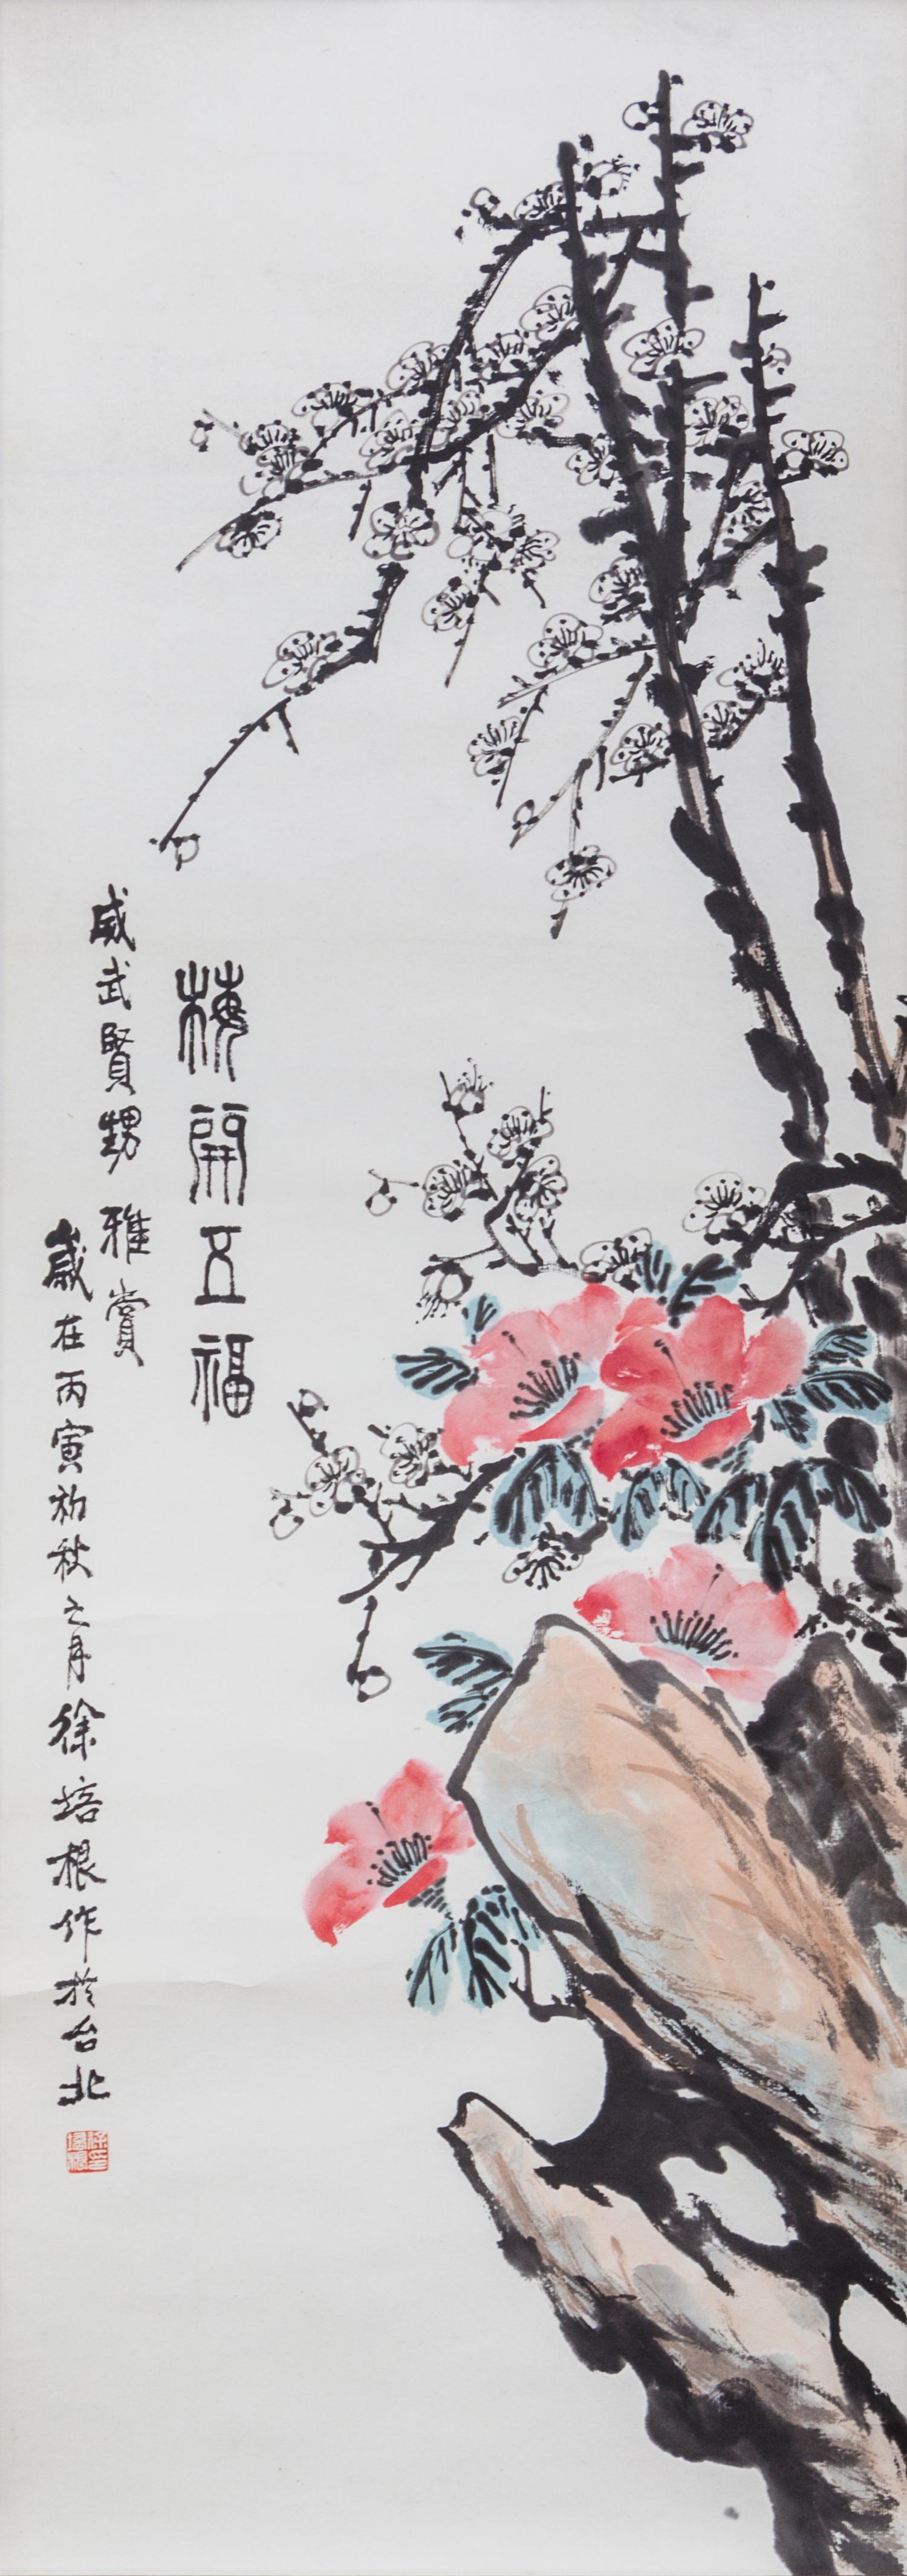 梅開五福
威武賢甥雅賞
歲在丙寅初秋之月徐培根作於台北